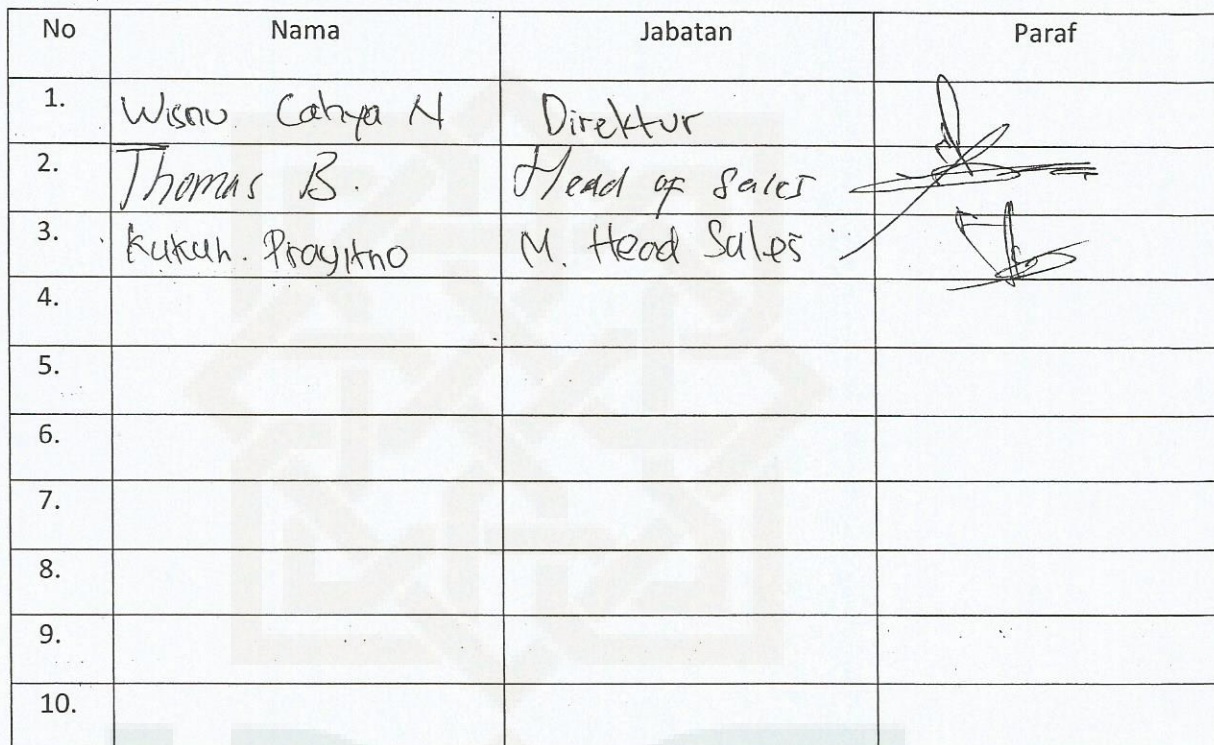 No Nama Jabatan Paraf
1. Wisnu Cahya N Direktur
2. Thomas B. Head of Sales
3. Kukuh. Prayitno M. Head Sales
4.
5.
6.
7.
8.
9.
10.